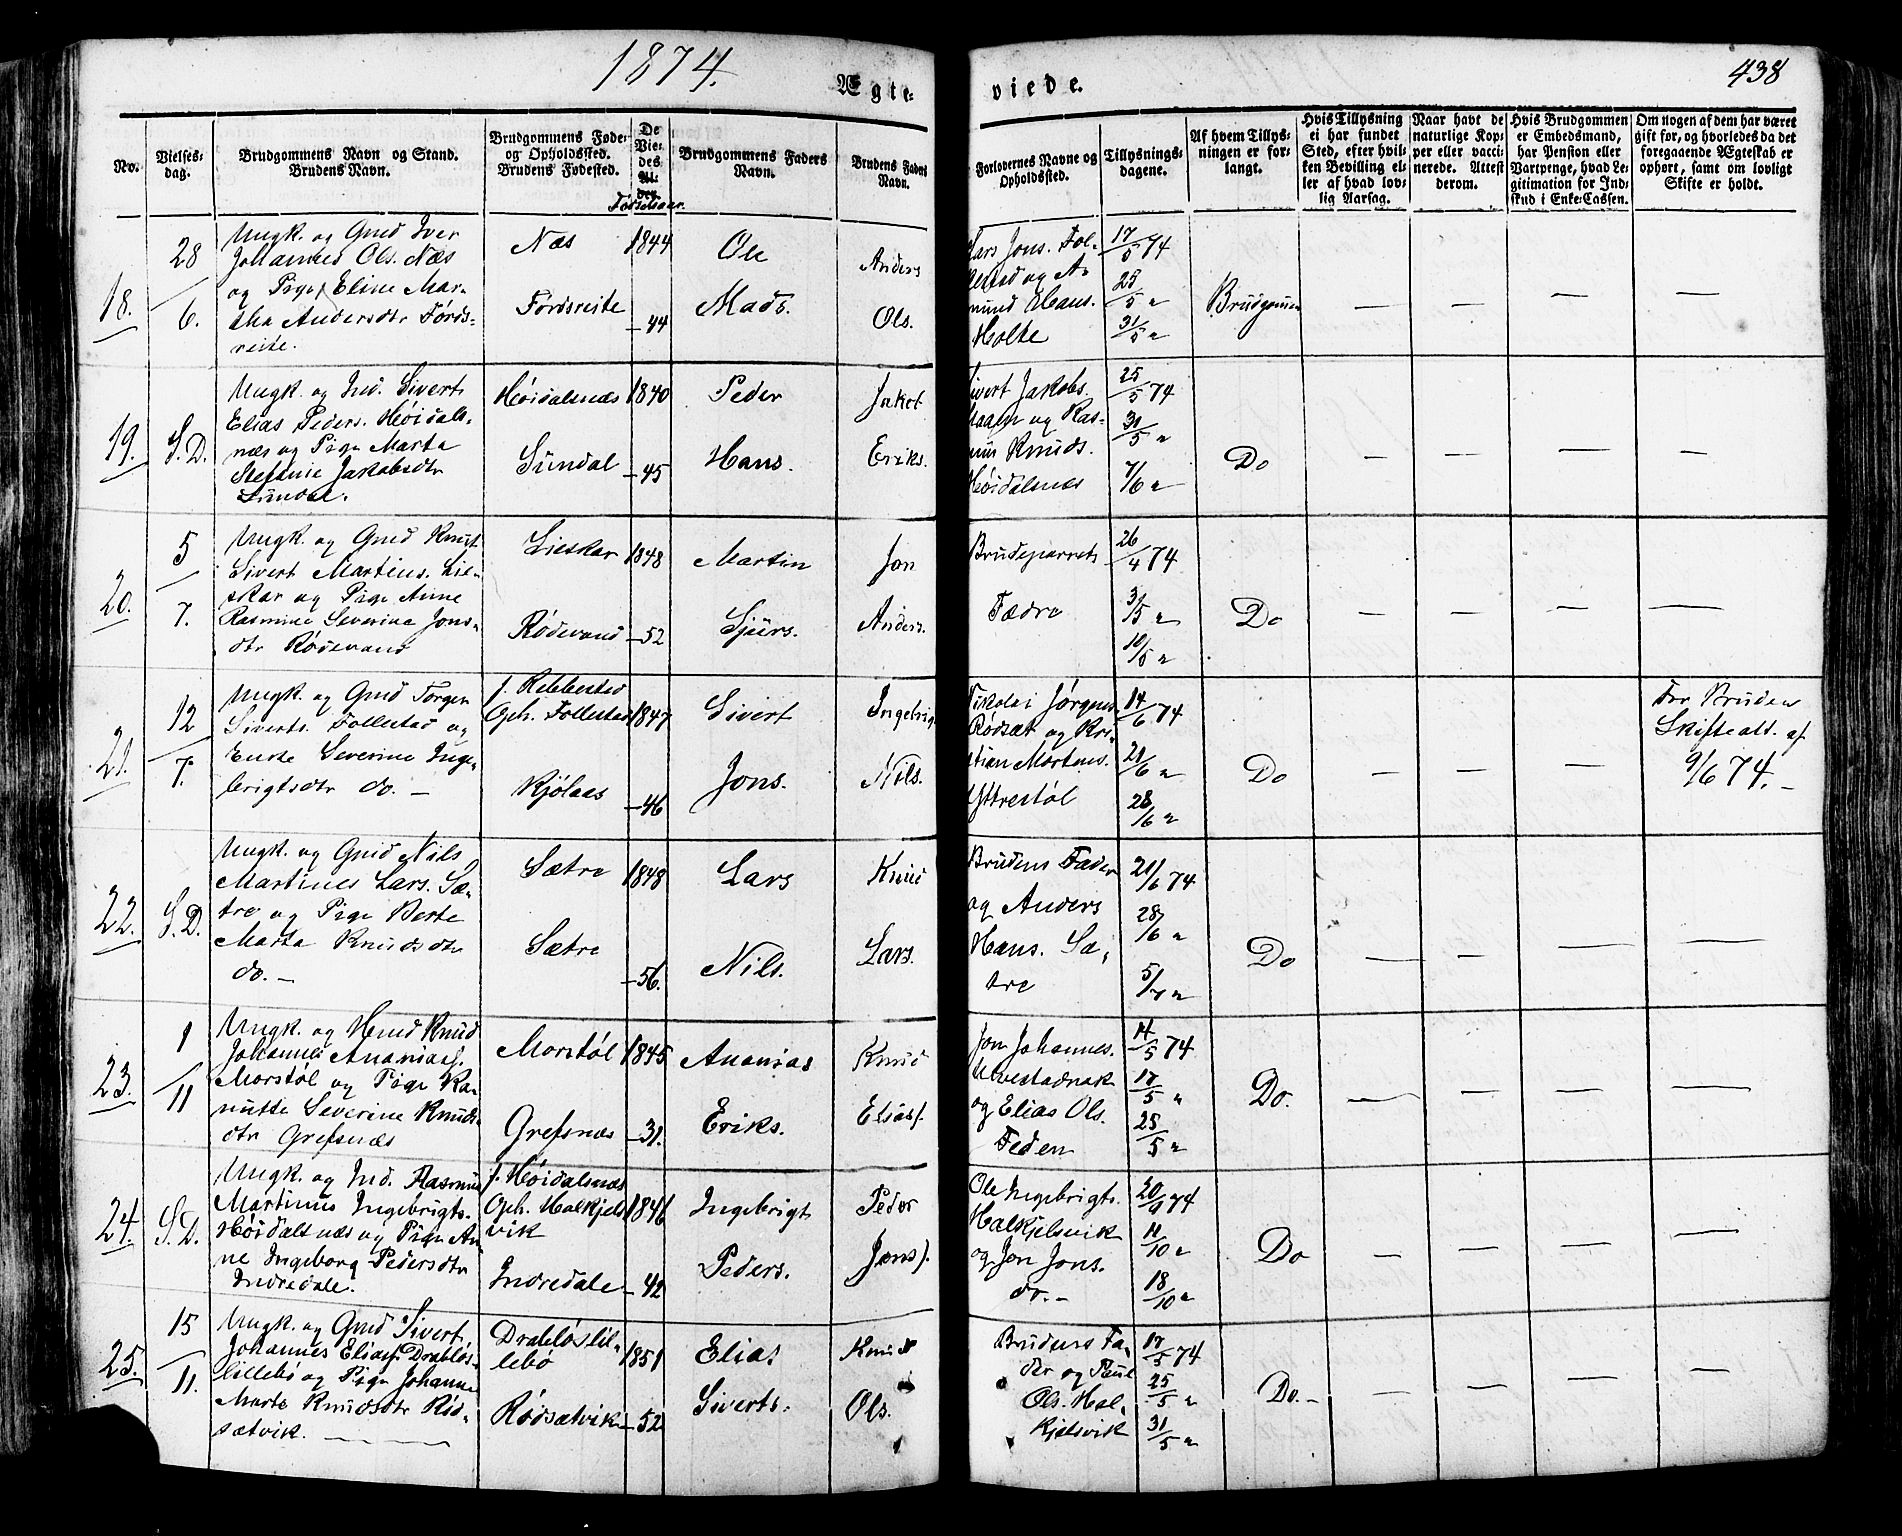 1874.
438
Ægte-
viede.
No.
Vielses-
dag.
Brudgommens Navn og Stand.
Brudens Navn.
Brudgommens Føde-
og Opholdssted.
Brudens Fødested.
De
Vie-
des
Al-
der.
Fødselsaar.
Brudgommens Faders
Navn.
Brudens Faders
Navn.
Forlovernes Navne og
Opholdssted.
Tillysnings-
dagene.
Af hvem Tillys-
ningen er for-
langt.
Hvis Tillysning
ei har fundet
Sted, efter hvil-
ken Bevilling el-
ler af hvad lov-
lig Aarsag.
Naar havt de
naturlige Kop-
per eller vacci-
nerede. Attest
derom.
Hvis Brudgommen
er Embedsmand,
har Pension eller
Vartpenge, hvad Le-
gitimation for Ind-
skud i Enke-Cassen.
Om nogen af dem har været
gift før, og hvorledes da det
foregaaende Ægteskab er
ophørt, samt om lovligt
Skifte er holdt.
18.
28/6.
Ungk. og Gmd Iver
Johannes Ols. Næs
og Pige Eline Mar-
tha Andersdtr Førds-
reite.
Næs
Fordsreite
1844
-44
Ole
Mads.
Anders
Ols.
Lars Jons. Fol-
lestad og A-
mund Hans.
Holte
17/5 74
25/5 "
31/5 "
Brudgomen
— — — —
19.
S.D.
Ungk. og Ind. Sivert
Elias Peders. Høidals-
næs og Pige Marta
Stefanie Jakobsdtr
Sundal.
Høidalsnæs
Sundal
1840
-45
Peder
Hans.
Jakob
Eriks.
Sivert Jakobs.
og Ras-
mus Knuds.
Høidalsnæs
25/5 74
31/5 "
7/6 "
Do
— — — —
20.
5/7.
Ungk. og Gmd Knut
Sivert Martins. Lie-
skar og Pige Anne
Rasmine Severine Jons-
dtr Rødevand
Lieskar
Rødevand
1848
-52
Martin
Sjurs.
Jon
Anders.
Brudeparrets
Fædre
26/4 74
3/5 "
10/5 "
Do
— — — —
21.
12/7.
Ungk. og Gmd Torger
Siverts. Follestad og
Enke Severine Inge-
brigtsdtr do. —
f. Rebbestad
Oph. Follestad
Kjølaas
1847
-46
Sivert
Jons.
Ingebrigt
Nils.
Nikolai Jørgens.
Rødsæt og Kri-
stian Martins.
Yttrestøl
14/6 74
21/6 "
28/6 "
Do
— — —
For Bruden
Skifteatt. af
9/6 74. —
22.
S.D.
Ungk. og Gmd Nils
Martines Lars. Sæ-
tre og Pige Berte
Marta Knudsdtr
do. —
Sætre
Sætre
1848
-56.
Lars
Nils.
Knud
Lars.
Brudens Fader
og Anders
Hans. Sæ-
tre
21/6 74
28/6 "
5/7 "
Do
— — — —
23.
1/11
Ungk. og Hmd Knud
Johannes Ananiasf.
Morstøl og Pige Ka-
nutte Severine Knuds-
dtr Grefsnæs
Morstøl
Grefsnæs
1845
-31.
Ananias
Eriks.
Knud
Eliasf.
Jon Johannes.
Ulvestadnak
og Elias Ols.
Feden
14/5 74
17/5 "
25/5 "
Do.
— — — —
24.
S.D.
Ungk. og Ind. Rasmus
Martinus Ingebrigts.
Høidalsnæs og Pige An-
ne Ingeborg Pedersdtr
Indredale.
f. Høidalsnæs
Oph. Halkjels-
vik
Indredale
1846
-42
Ingebrigt
Peders.
Peder
Jonsf.
Ole Ingebrigts.
Halkjelsvik
og Jon Jons.
do. —
20/9 74
11/10 "
18/10 "
Do
— — — —
25.
15/11.
Ungk. og Gmd Sivert
Johannes Eliasf. Drabløs-
lillebø og Pige Johanne
Marte Knudsdtr Rød-
sætvik. —
Drabløslil-
lebø
Rødsætvik
1851
-52
Elias
Siverts.
Knud
Ols.
Brudens Fa-
der og Paul
Ols. Hal-
kjelsvik
17/5 74
25/5 "
31/5 "
Do. —
— — — —